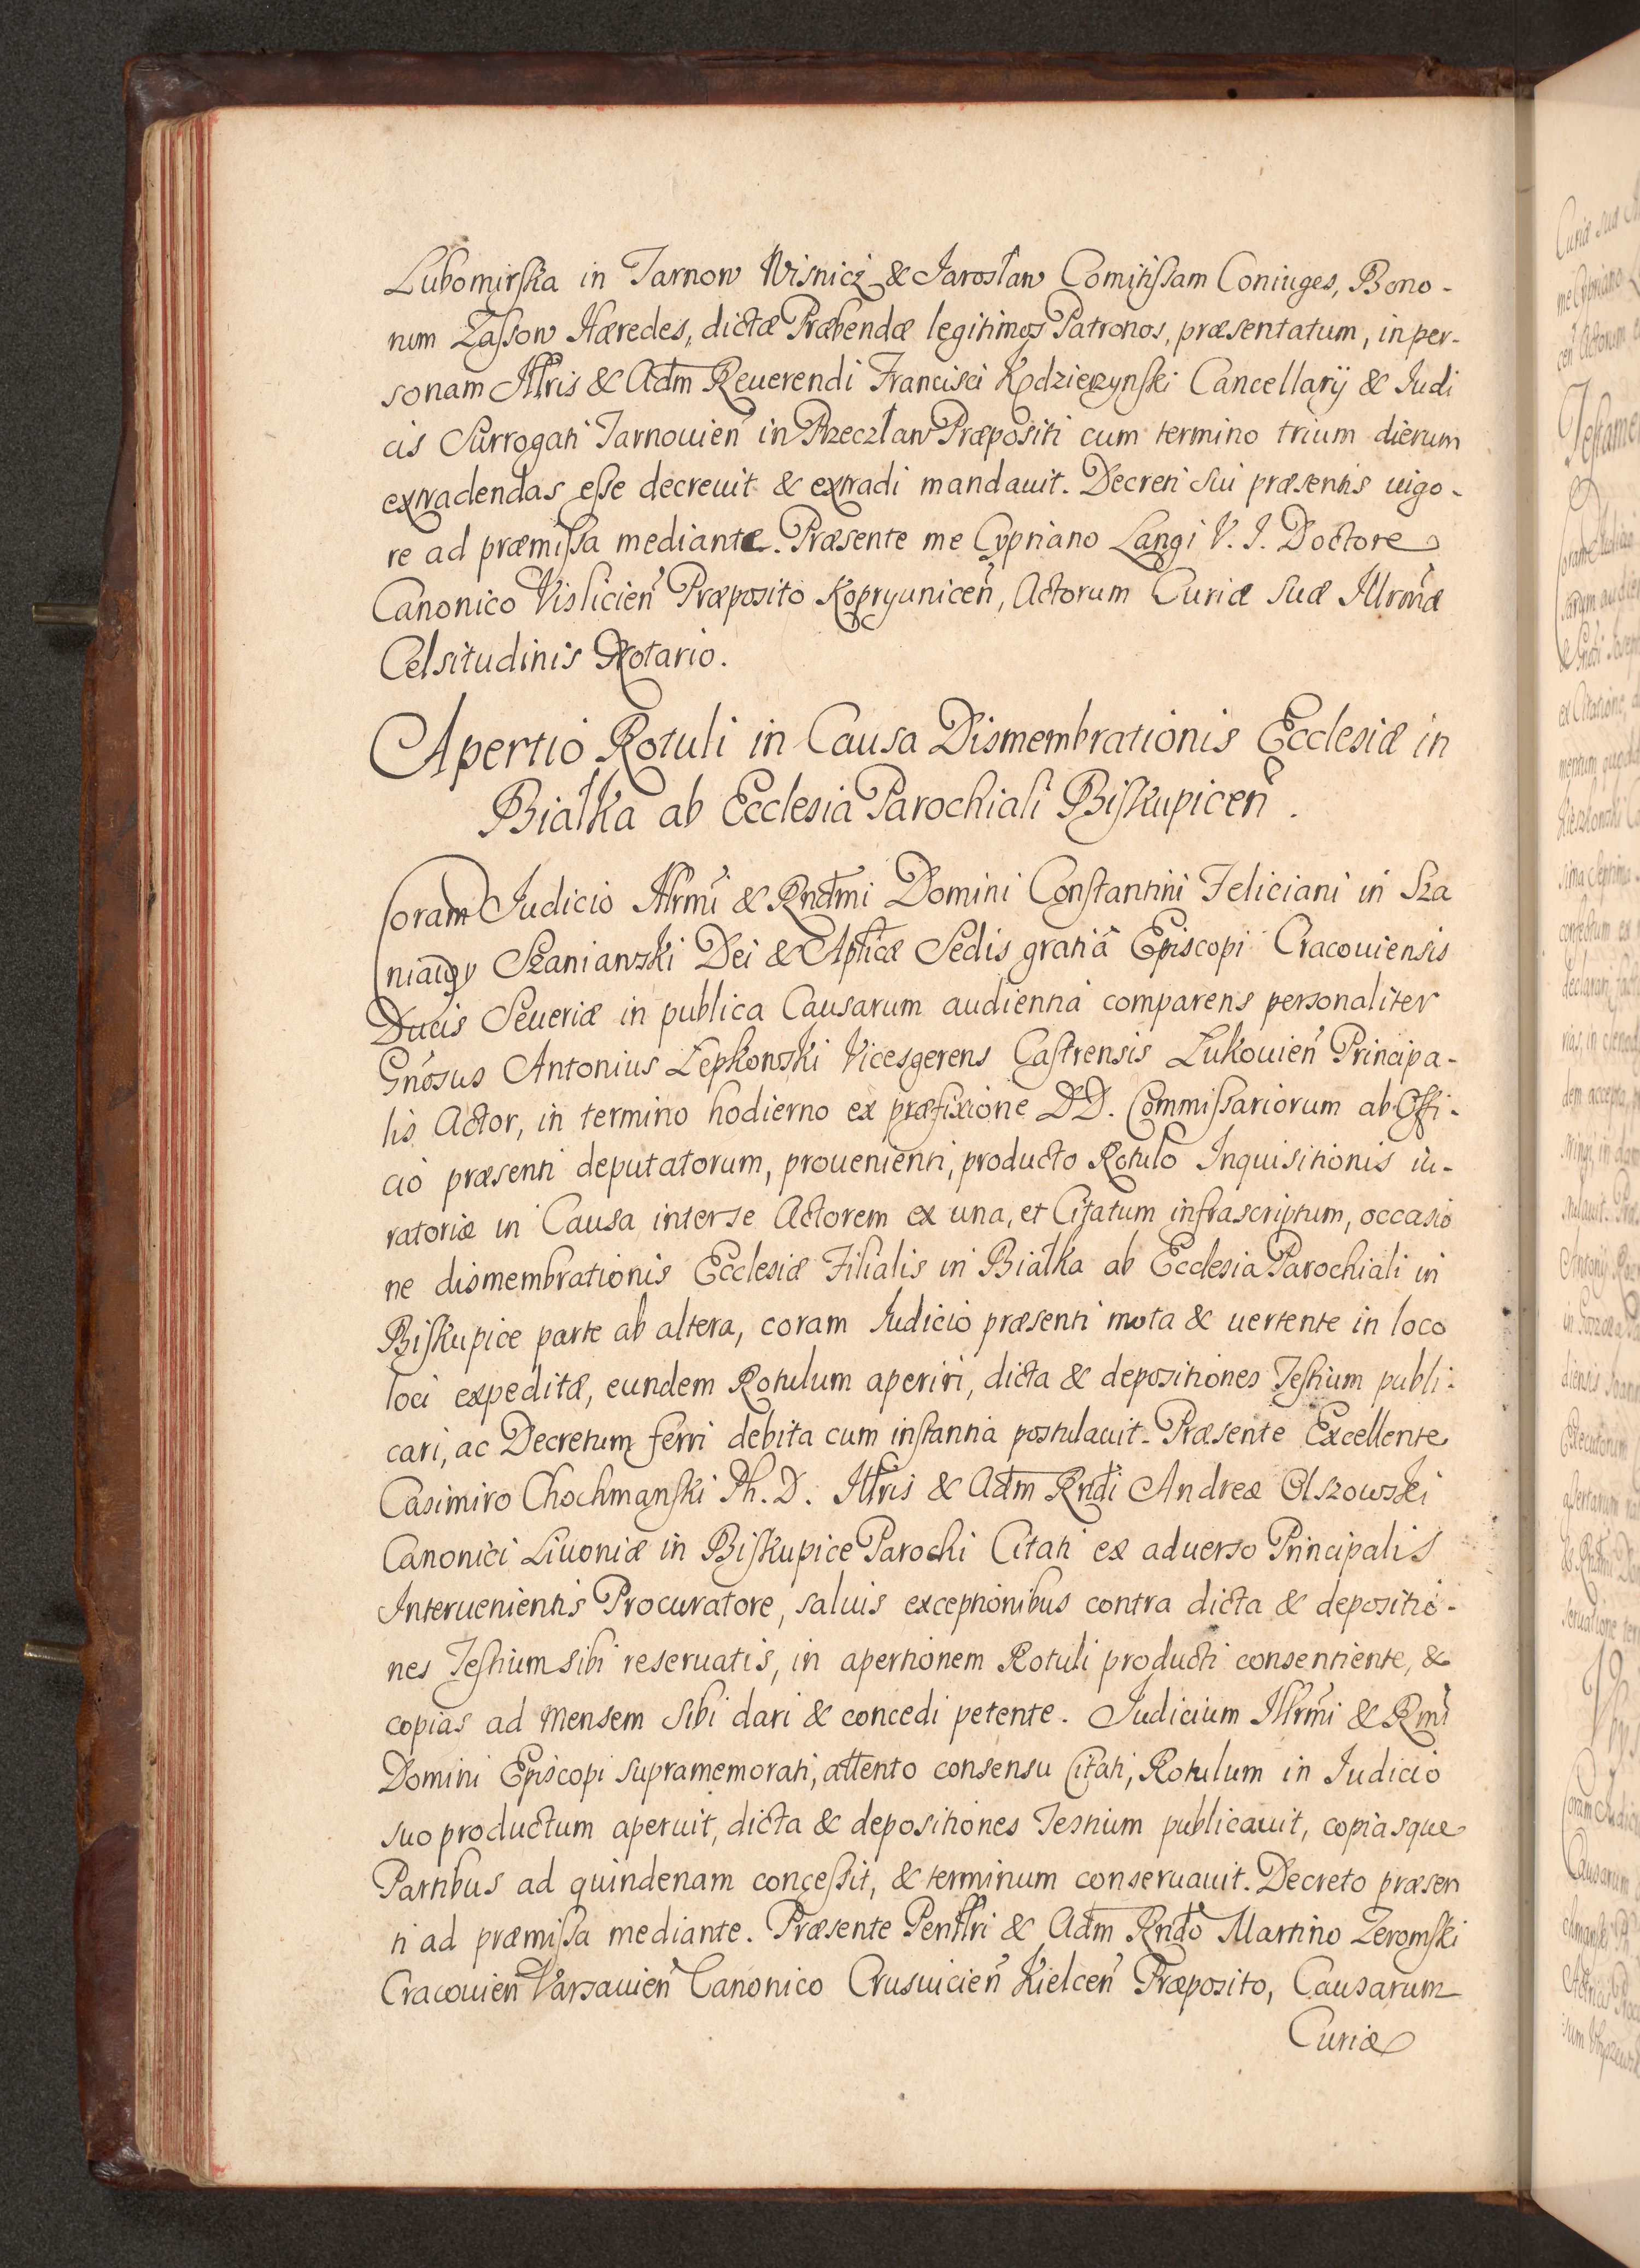 Lubomirska in Tarnow Wisnicż & Jarosław Comitissam Coniuges, Bono-
rum Zassow Hæredes, dictæ Præbendæ legitimos Patronos, præsentatum, in per-
sonam Illris & Adm Reuerendi Francisci Kodzierzynski Cancellarij & Iudi
cis Surrogati Tarnouien in Przeczław Præpositi cum termino trium dierum
extradendas esse decreuit & extradi mandauit. Decreti sui præsentis uigo-
re ad præmissa mediante. Præsente me Cypriano Langi V. I. Doctore
Canonico Vislicien Præposito Kopryunicen, Actorum Curiæ Suæ Illrmæ
Celsitudinis Notario.
Apertio Rotuli in Causa Dismembrationis Ecclesiæ in
Białka ab Ecclesia Parochiali Biskupicen.
Coram Judicio Illrmi & Rndmi Domini Constantini Feliciani in Sza
niawy Szaniawski Dei & Aplicæ Sedis gratia Episcopi Cracouiensis
Ducis Seueriæ in publica Causarum audientia comparens personaliter
Gnosus Antonius Łepkowski Vicesgerens Castrensis Lukouien Principa-
lis Actor, in termino hodierno ex præfixione DD. Commissariorum ab Offi-
cio præsenti deputatorum, prouenienti, producto Rotulo Inquisitionis iu-
ratoriæ in Causa inter se Actorem ex una, et Citatum infrascriptum, occasio
ne dismembrationis Ecclesiæ Filialis in Białka ab Ecclesia Parochiali in
Biskupice parte ab altera, coram Iudicio præsenti mota & uertente in loco
loci expeditæ, eundem Rotulum aperiri, dicta & depositiones Testium publi-
cari, ac Decretum ferri debita cum instantia postulauit. Præsente Excellente
Casimiro Chochmanski Ph. D. Illris & Adm Rndi Andreæ Olszowski
Canonici Liuoniæ in Biskupice Parochi Citati ex aduerso Principalis
Interuenientis Procuratore, saluis exceptionibus contra dicta & depositio-
nes Testium sibi reseruatis, in apertionem Rotuli producti consentiente, &
copias ad Mensem sibi dari & concedi petente. Judicium Illrmi & Rmi
Domini Episcopi supramemorati, attento consensu Citati, Rotulum in Iudicio
suo productum aperuit, dicta & depositiones Testium publicauit, copiasque
Partibus ad quindenam concessit, & terminum conseruauit. Decreto præsen
ti ad præmissa mediante. Præsente Penllri & Adm Rndo Martino Zeromski
Cracouien Varsauien Canonico Crusuicien Kielcen Præposito, Causarum
Curiæ